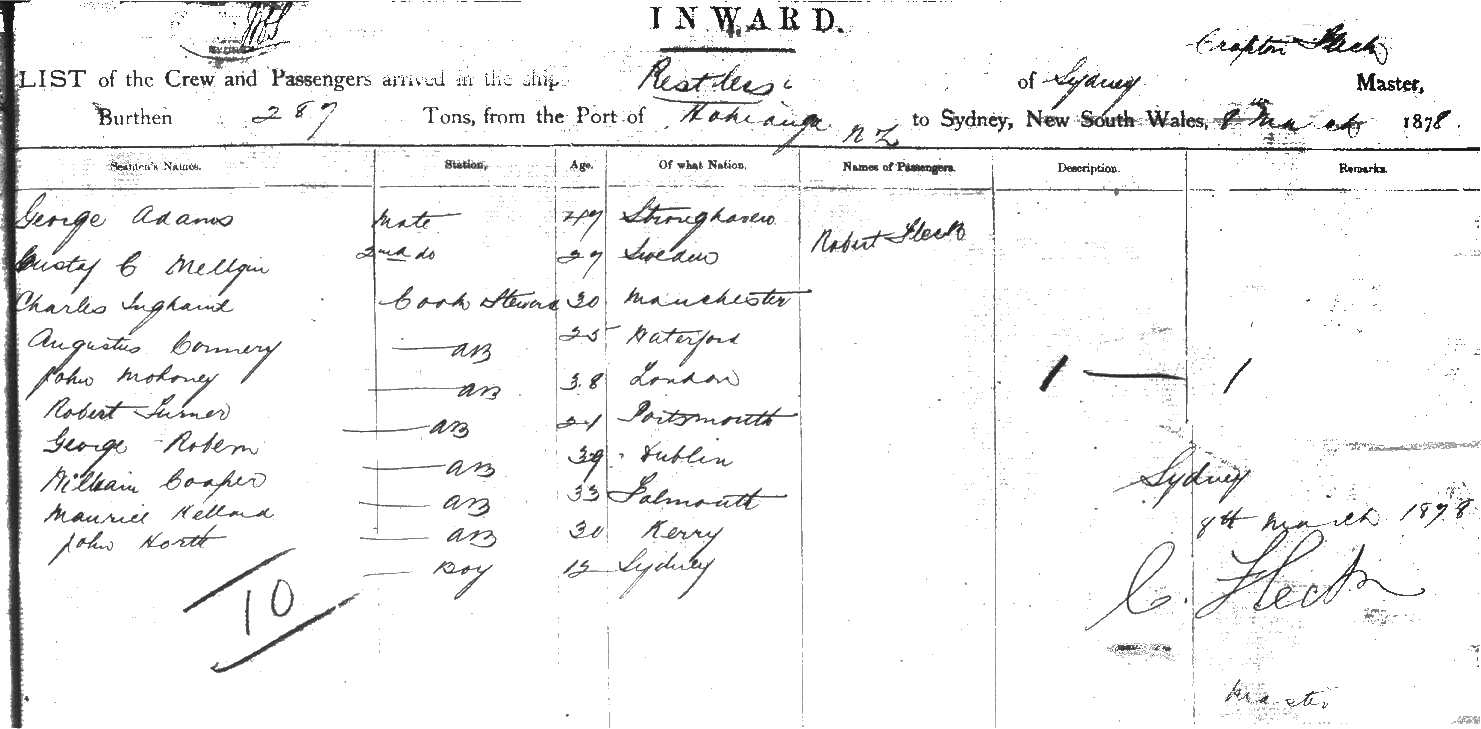 INWARD.
Crapton Fleck
LIST of the Crew and Passengers arrived in the ship Restless of Sydney Master,
Burthen 287 Tons, from the Port of Hokianga NZ to Sydney, New South Wales, 8th March 1878.
Seamen's Names. Station, Age. Of what Nation. Names of Passengers. Description. Remarks.
George Adams Mate 47 Stronghaven
Robert Fleck
Gustaf C Mellgin 2nd do 27 Sweden
Charles Ingham Cook Steward 30 Manchester
Augustus Connery AB 25 Waterford
John Mohoney AB 38 London 1 — 1
Robert Turner AB 21 Portsmouth
George Robern AB 39 Dublin
William Cooper AB 33 Falmouth
Sydney
Maurice Kellond AB 30 Kerry
8th March 1878
John North Boy 15 Sydney
10
C. Fleck
Master